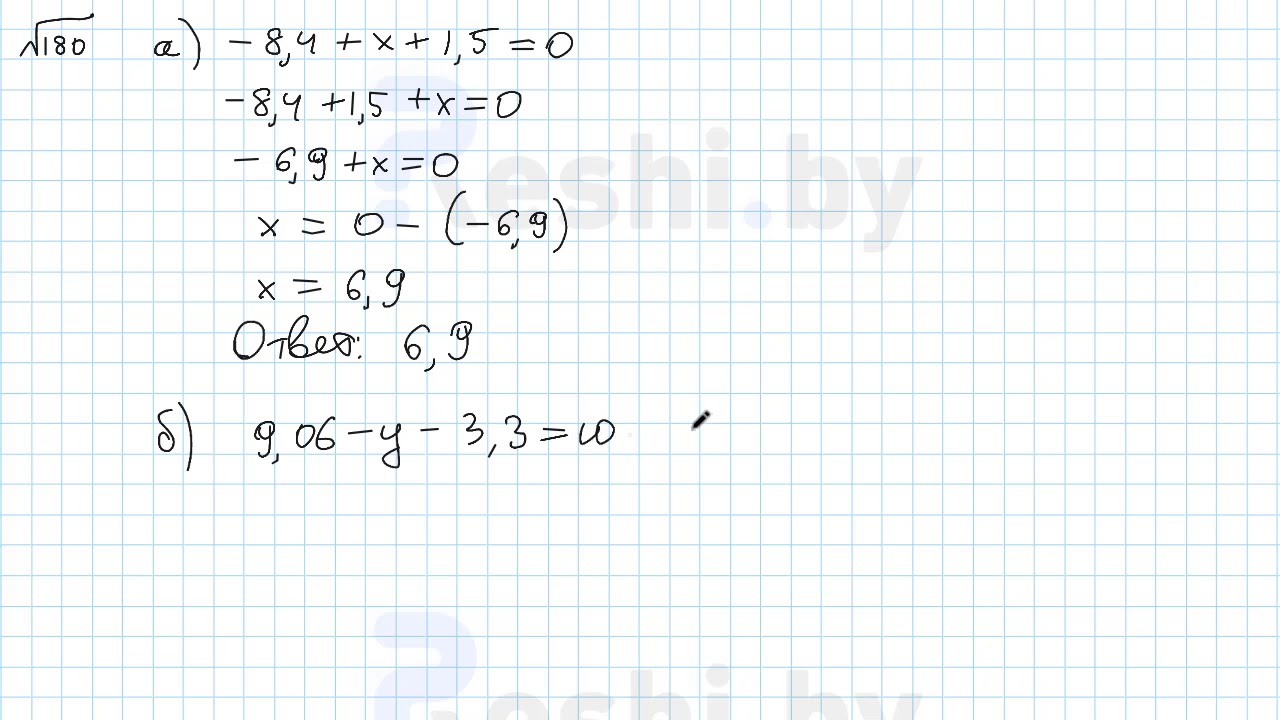 √180 а) -8,4 + x + 1,5 = 0
-8,4 + 1,5 + x = 0
-6,9 + x = 0
x = 0 - (-6,9)
x = 6,9
Ответ: 6,9
б) 9,06 - y - 3,3 = 10
Reshi.by
Reshi.by